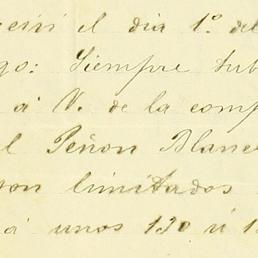 el dia 1º. de
go: Siempre tub
á V. de la comp
l Peñon Blanc
on limitados
á unos 130 ú 1